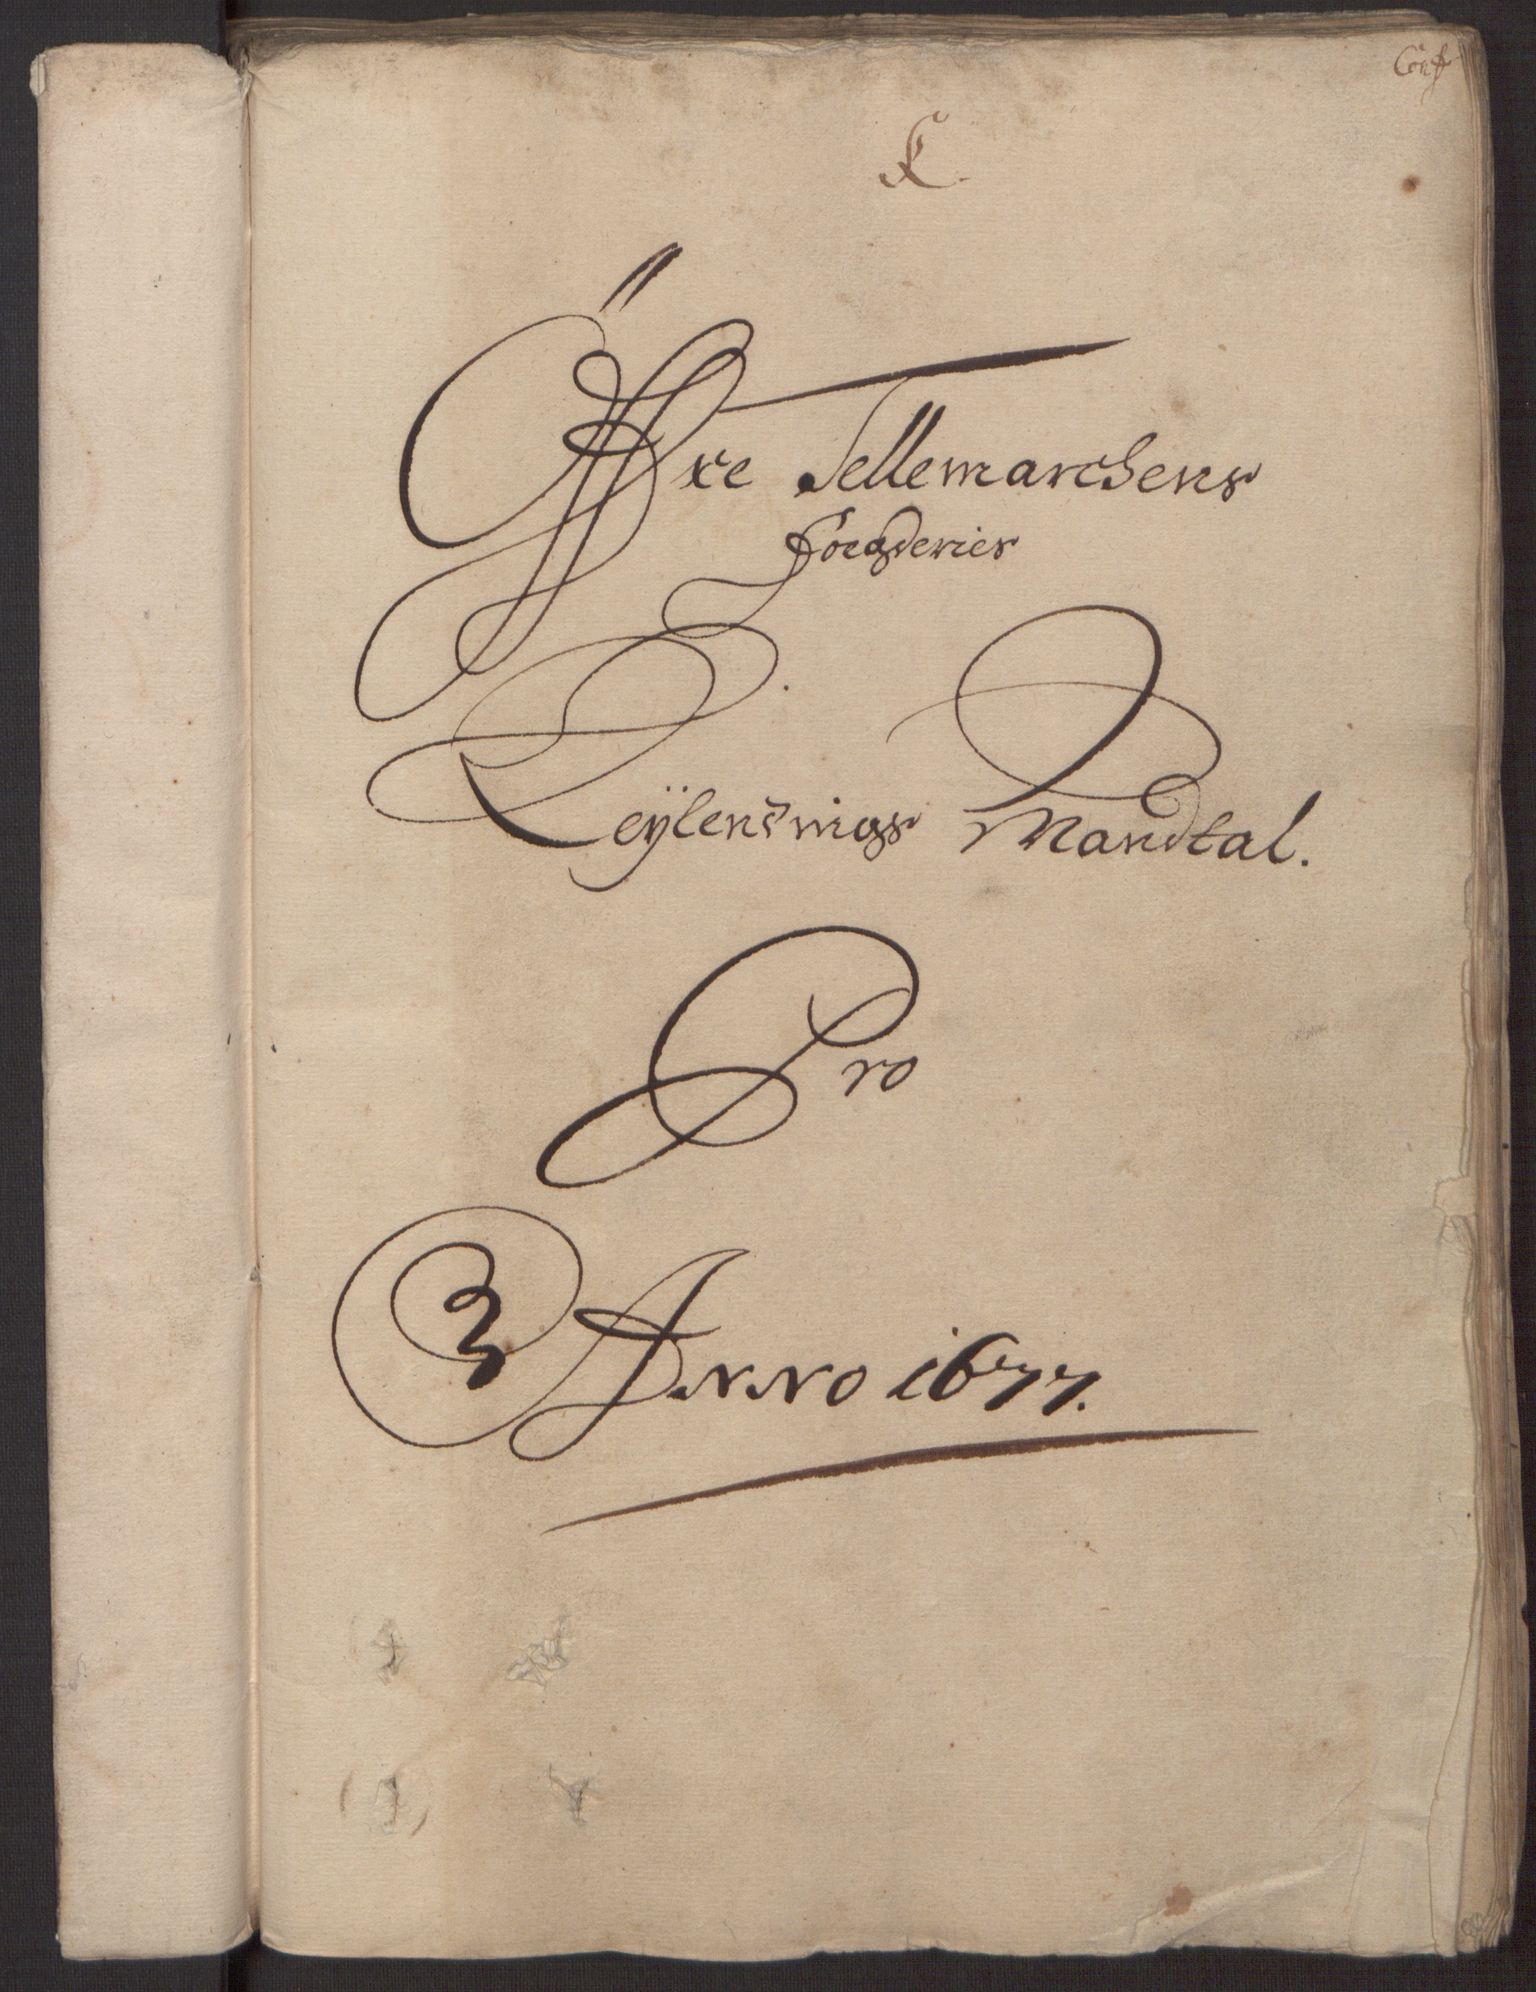 Conf
C.
Øfre Tellemarchens
foegderies
Leÿlendings Mandtal.
Pro
Anno 1677.